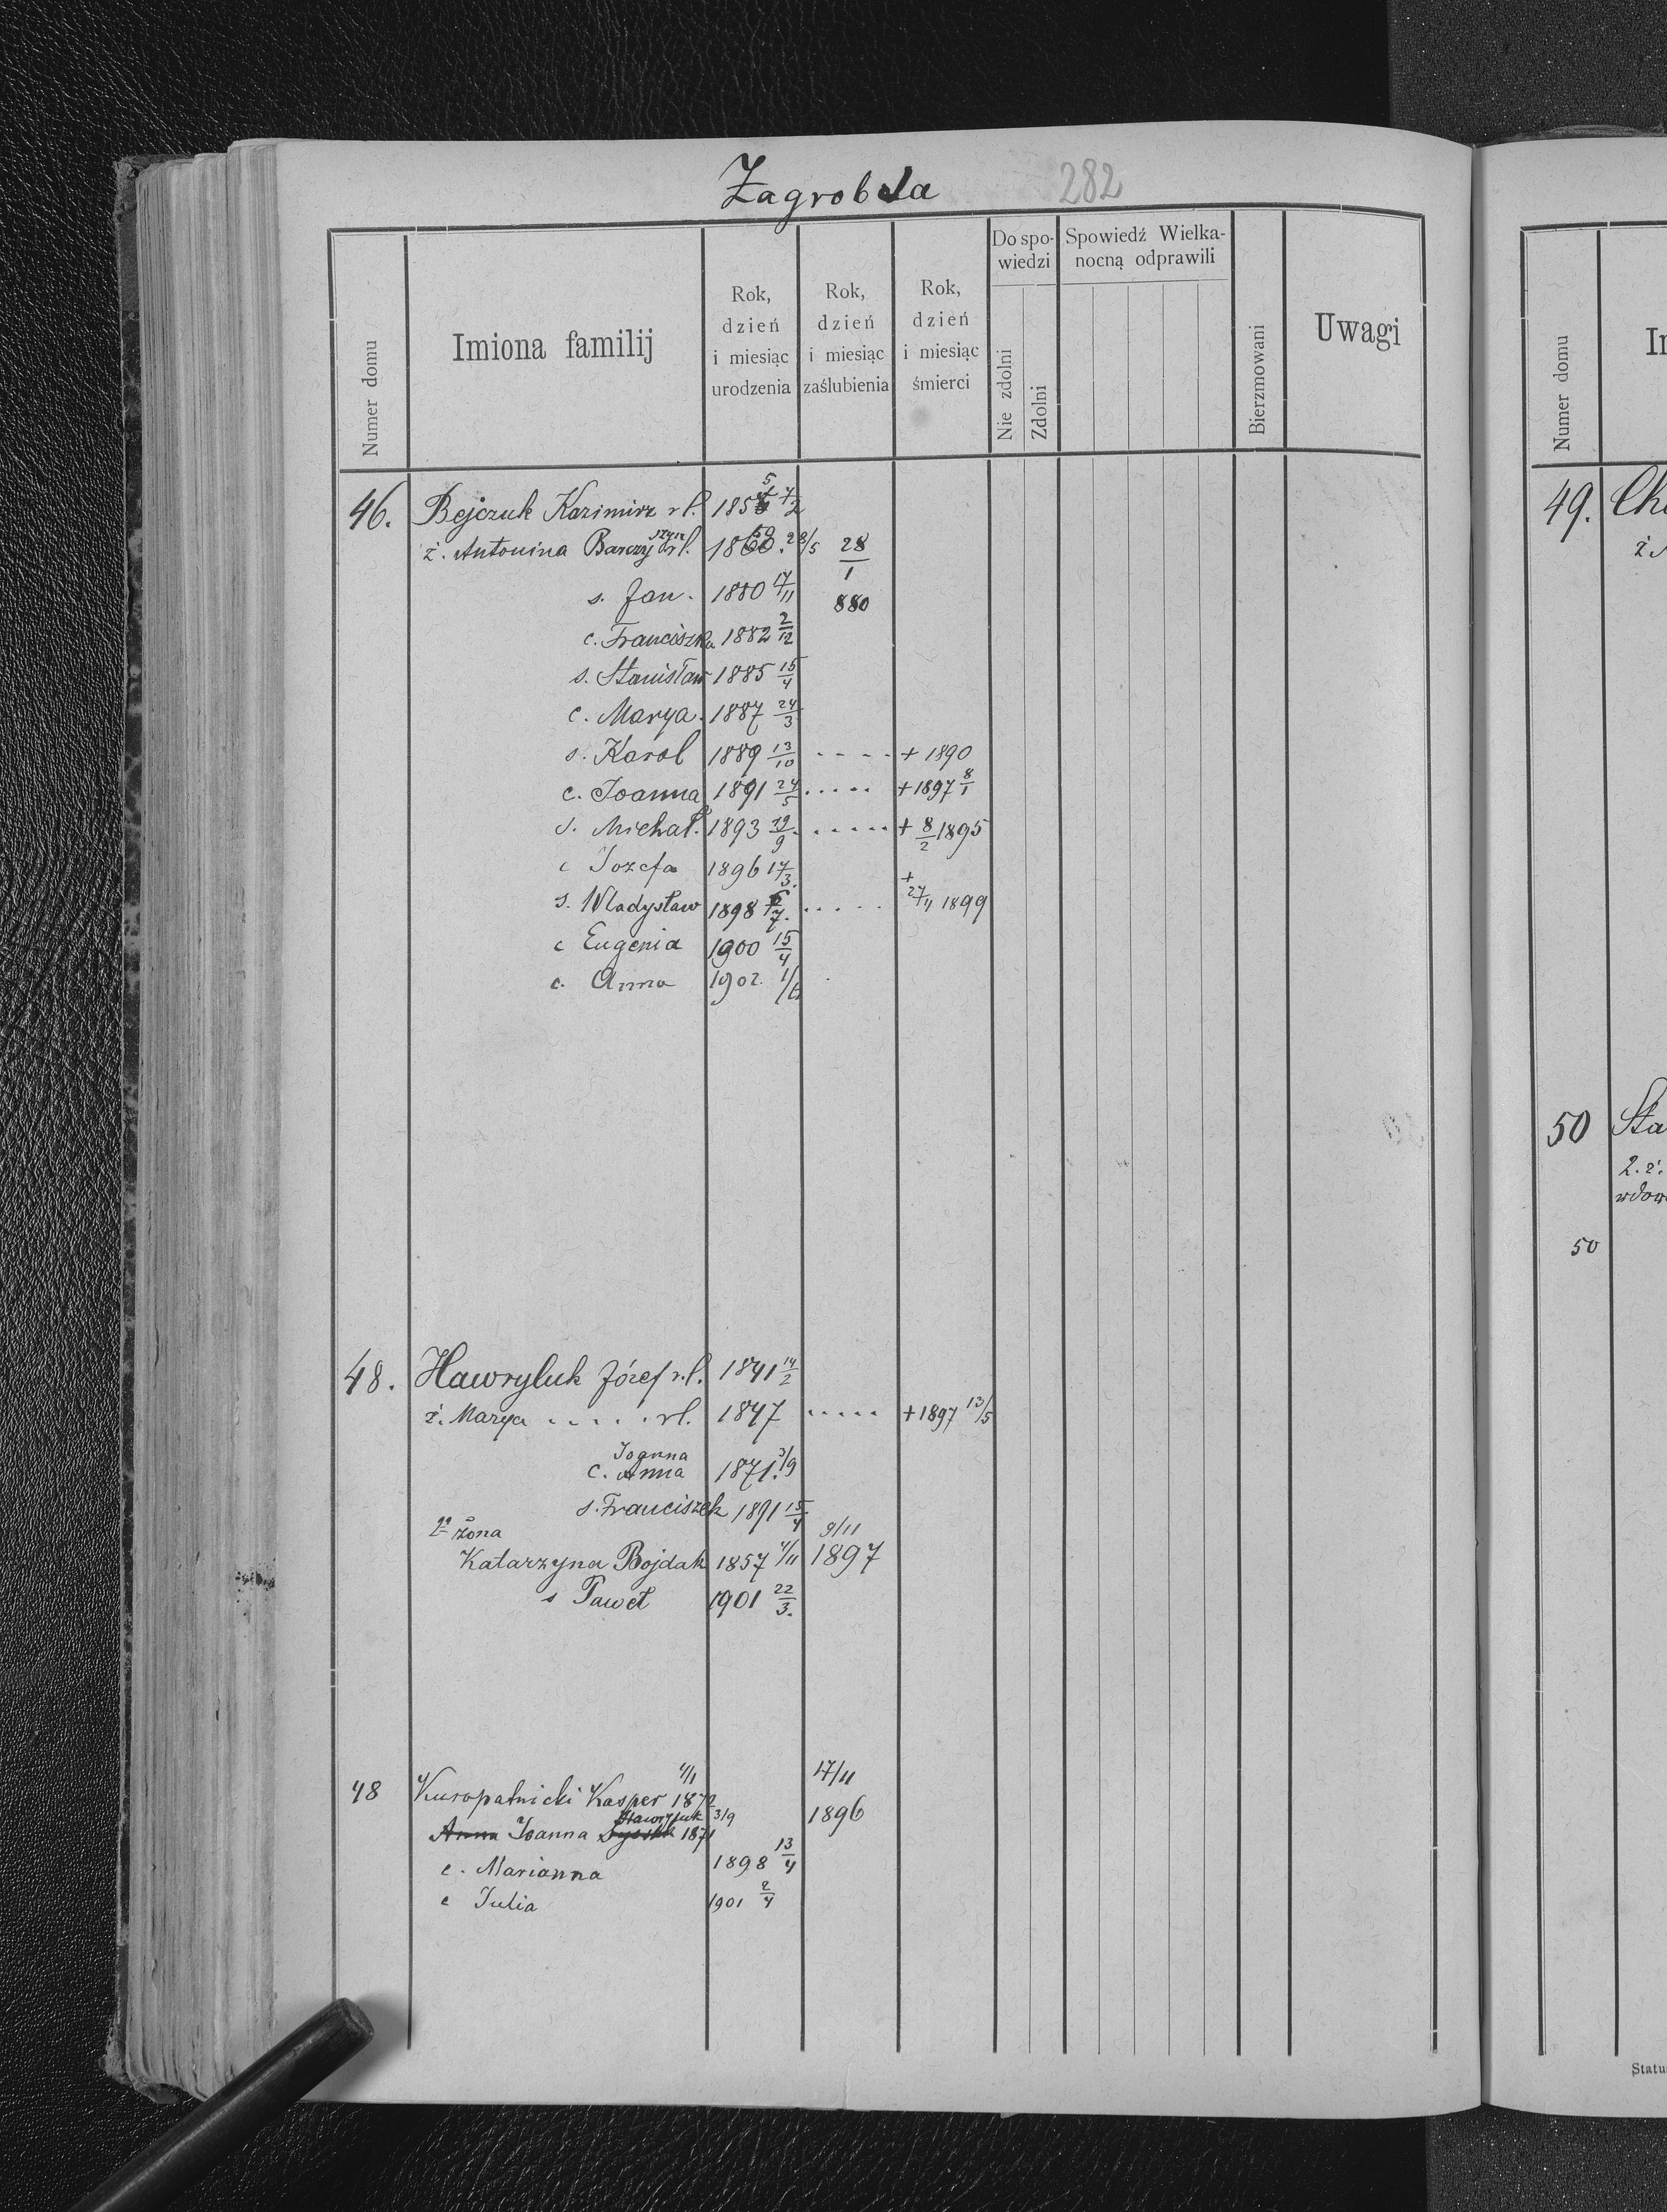 Zagrobla 282
Numer domu
Imiona familij
Rok, dzień i miesiąc urodzenia
Rok, dzień i miesiąc zaślubienia
Rok, dzień i miesiąc śmierci
Do spowiedzi
Nie zdolni
Zdolni
Spowiedź Wielkanocną odprawili
Bierzmowani
Uwagi
46. Bejczuk Kazimirz rl. 1855 7/2
ż. Antonina rl. 28/5 28/1 880
s. Jan. 1880 17/11
c. Franciszka 1882 2/12
s. Stanisław 1885 15/4
c. Marya. 1887 24/3
s. Karol 1889 13/10 - - - - + 1890
c. Joanna 1891 24/5 ..... + 1897 8/1
s. Michał. 1893 29/9 ..... + 8/2 1895
c Jozefa 1896 17/3.
s. Władysław 1898 /7. ..... + 27/11 1899
c Eugenia 1900 15/4
c. Anna 1902. 1/6
48. Hawryluk Józef r.l. 1841 14/2
ż. Marya ..... rl. 1847 ..... + 1897 13/5
Joanna
c. Anna 1871. 3/9
s. Franciszek 1891 15/4
2ga żona 9/11
Katarzyna Bojdak 1857 4/11 1897
s Paweł 1901 22/3.
48 Kuropatnicki Kasper 1872 4/1 17/11
Anna Joanna Hawryluk 1871 3/9 1896
c. Marianna 1898 13/4
c Julia 1901 2/4
Numer domu
49. Ch
ż
50 Sta
2. ż.
wdow
50
Statu